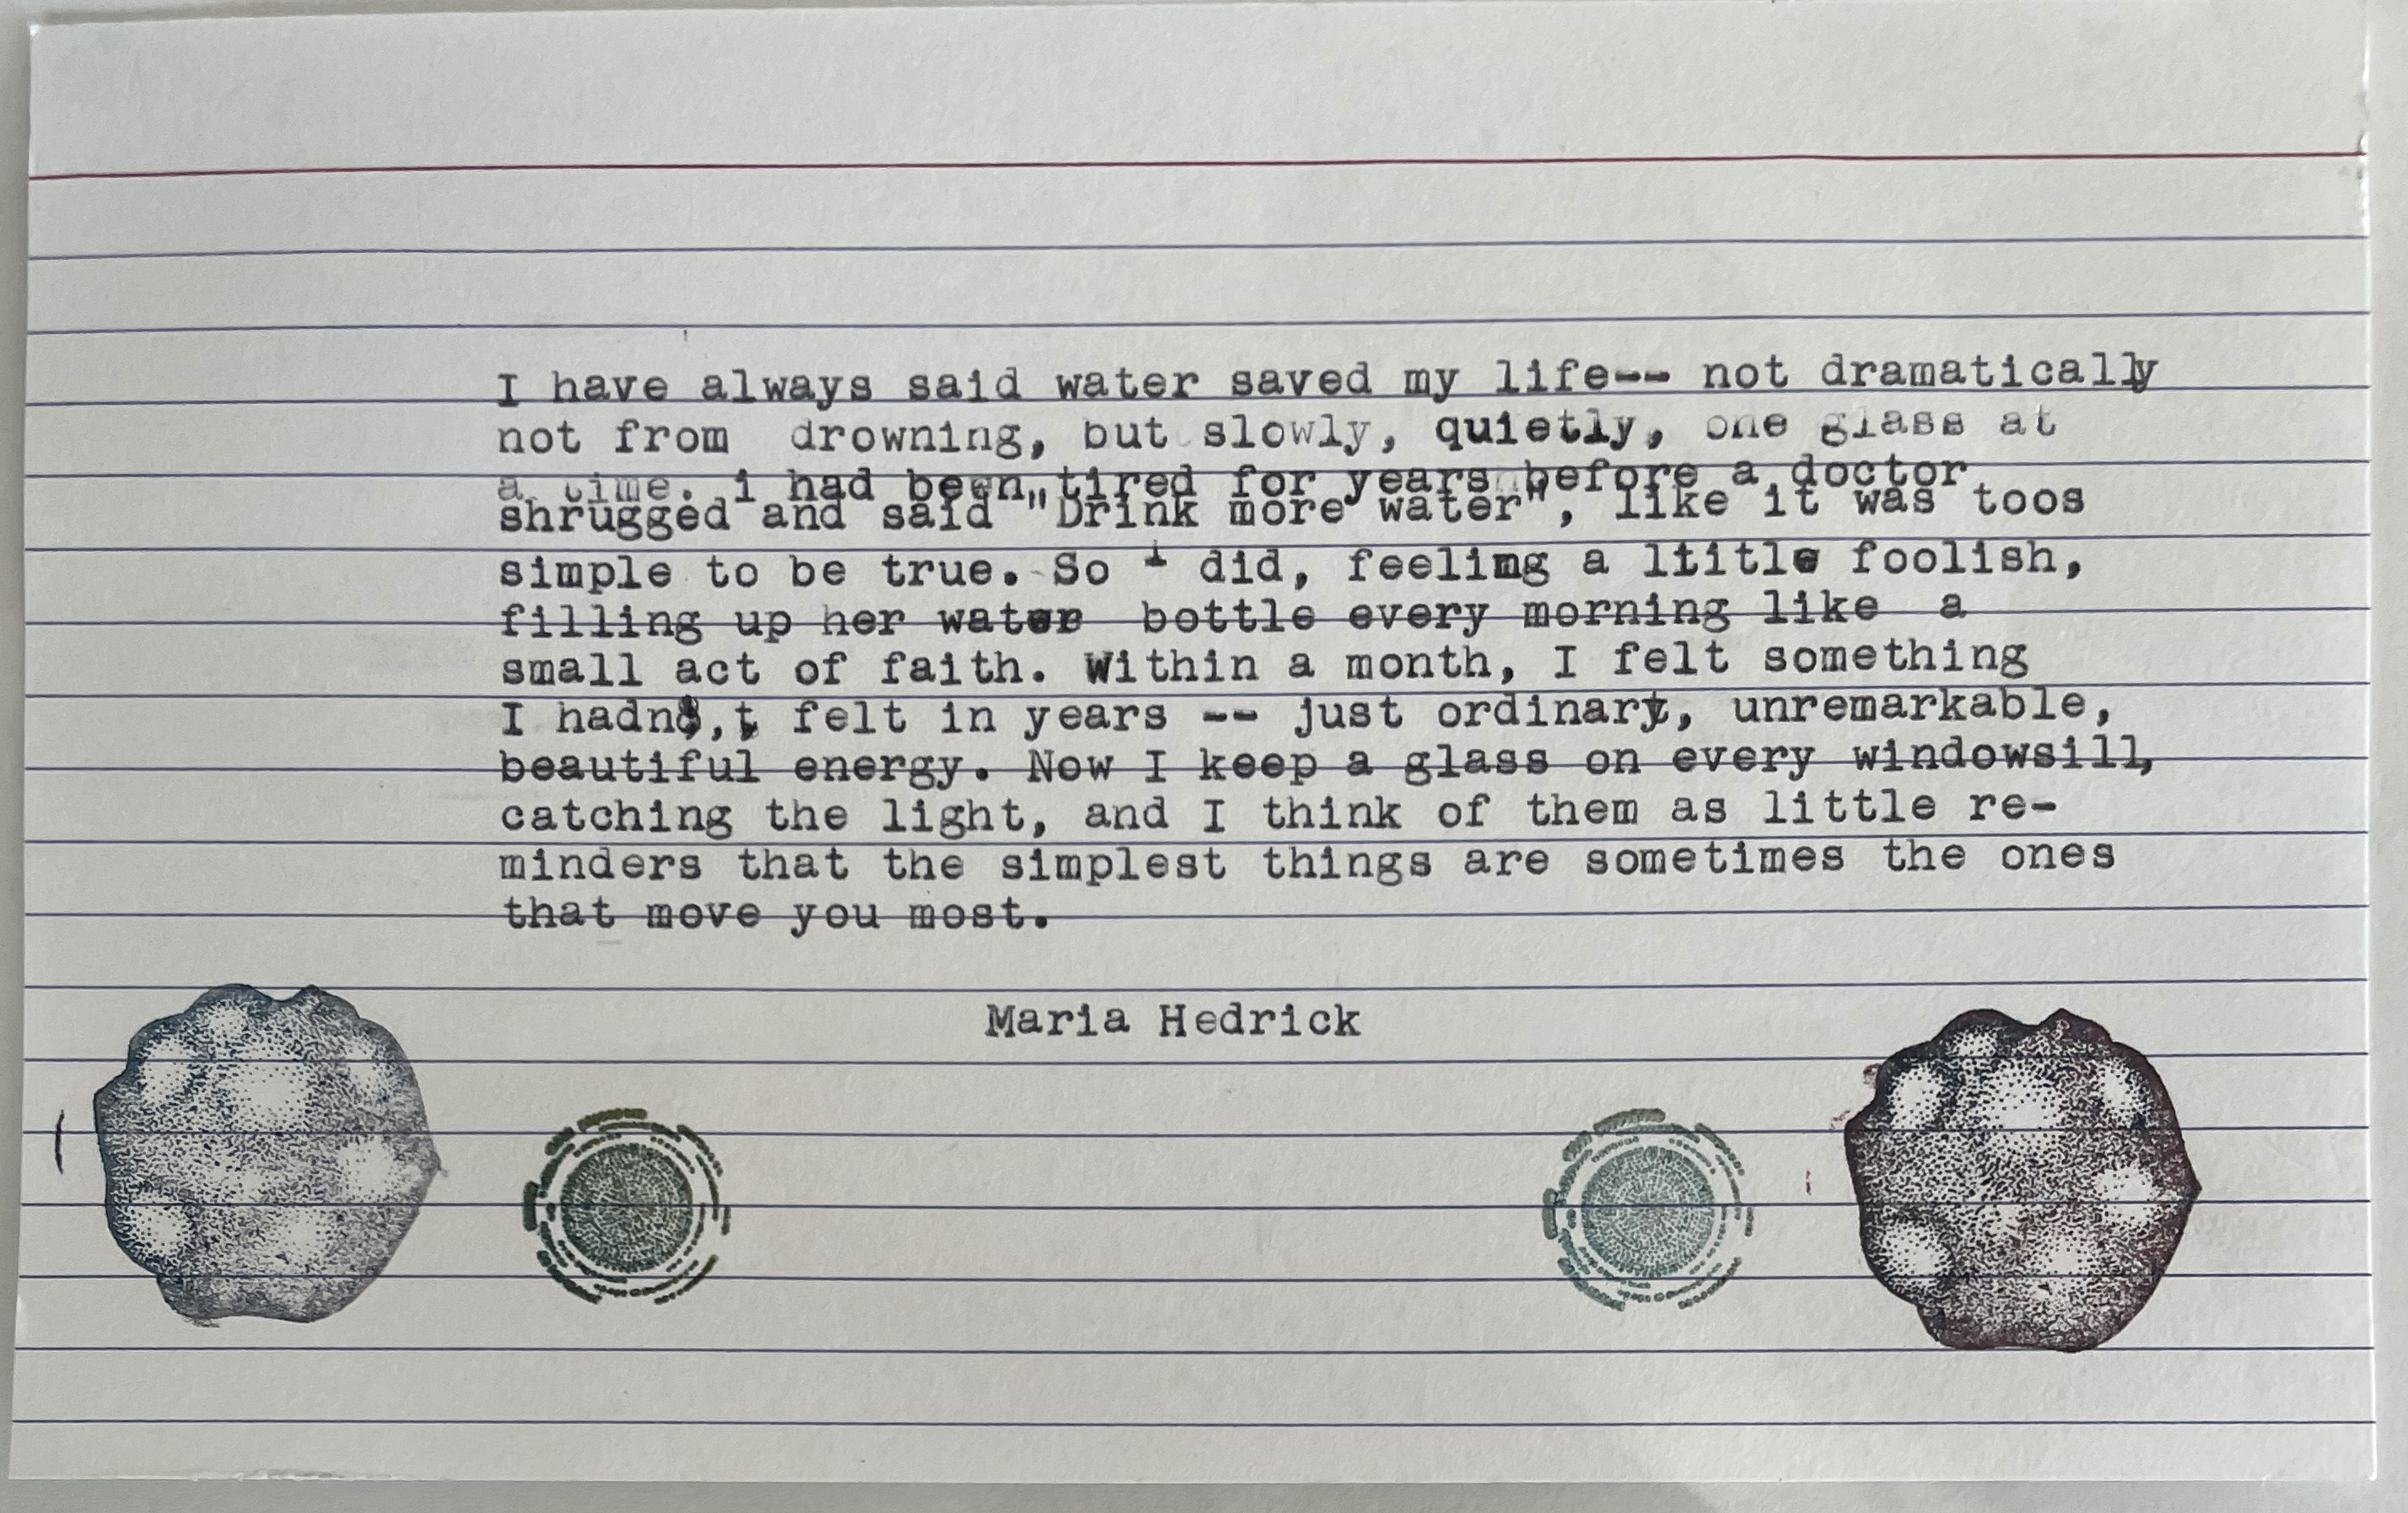 I have always said water saved my life-- not dramatically
not from drowning, but slowly, quietly, one glass at
a time. i had been tired for years before a doctor
shrugged and said "Drink more water", like it was toos
simple to be true. So I did, feeling a ltitle foolish,
filling up her water bottle every morning like a
small act of faith. Within a month, I felt something
I hadn,t felt in years -- just ordinary, unremarkable,
beautiful energy. Now I keep a glass on every windowsill,
catching the light, and I think of them as little re-
minders that the simplest things are sometimes the ones
that move you most.
Maria Hedrick